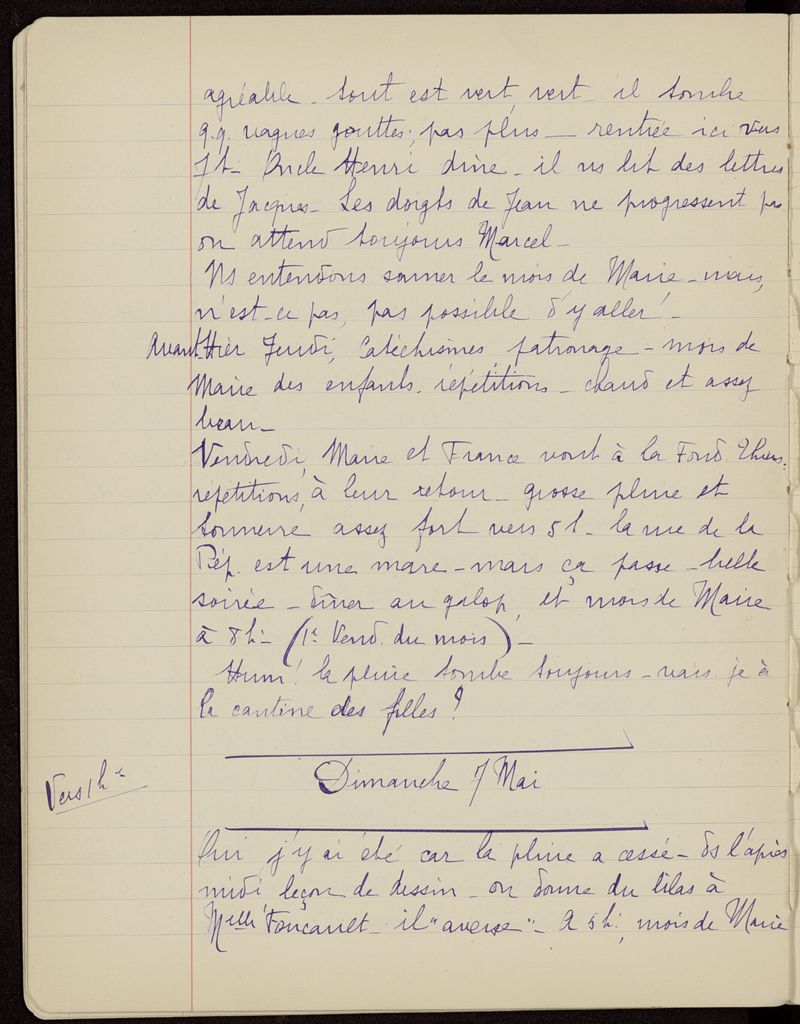 agréable. tout est vert, vert il tombe
q.q. vagues gouttes, pas plus — rentrée ici vers
7h. Oncle Henri dîne. il ns lit des lettres
de Jacques. Les doigts de Jean ne progressent pas
on attend toujours Marcel.
Ns entendons sonner le mois de Marie - mais,
n'est-ce pas, pas possible d'y aller! -
Avant Hier Jeudi, Catéchismes, patronage - mois de
Marie des enfants. répétitions - chaud et assez
beau -
Vendredi, Marie et France vont à la Fond. Thiers.
répétitions, à leur retour - grosse pluie et
tonnerre assez fort vers 5h - la rue de la
Pép. est une mare - mais ça passe - belle
soirée - dîner au galop, et mois de Marie
à 8h - (1er Vend. du mois) -
Hum! la pluie tombe toujours - vais-je à
la cantine des filles?
Dimanche 7 Mai
Vers 1h
Oui j'y ai été car la pluie a cessé - ds l'après
midi leçon de dessin - on donne du lilas à
Melle Foucault - il "averse" - à 5h, mois de Marie